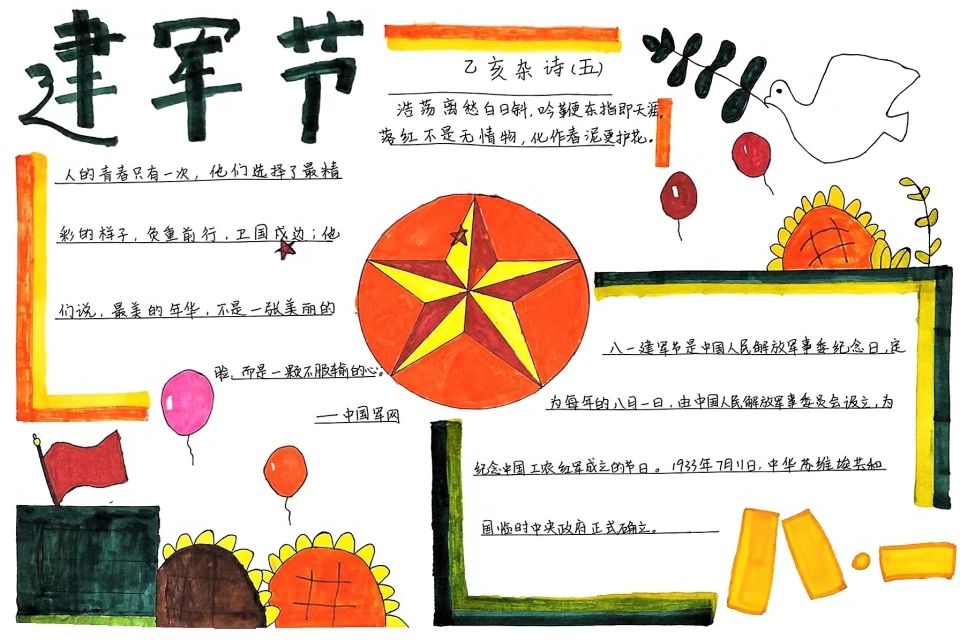 建军节
乙亥杂诗(五)
浩荡离愁白日斜,吟鞭东指即天涯,
落红不是无情物,化作春泥更护花。
人的青春只有一次,他们选择了最精
彩的样子,负重前行,卫国戍边;他
们说,最美的年华,不是一张美丽的
脸,而是一颗不服输的心。
——中国军网
八一建军节是中国人民解放军事委纪念日,定
为每年的八月一日,由中国人民解放军事委员会设立,为
纪念中国工农红军成立的节日。1933年7月11日,中华苏维埃共和
国临时中央政府正式确立。
八·一